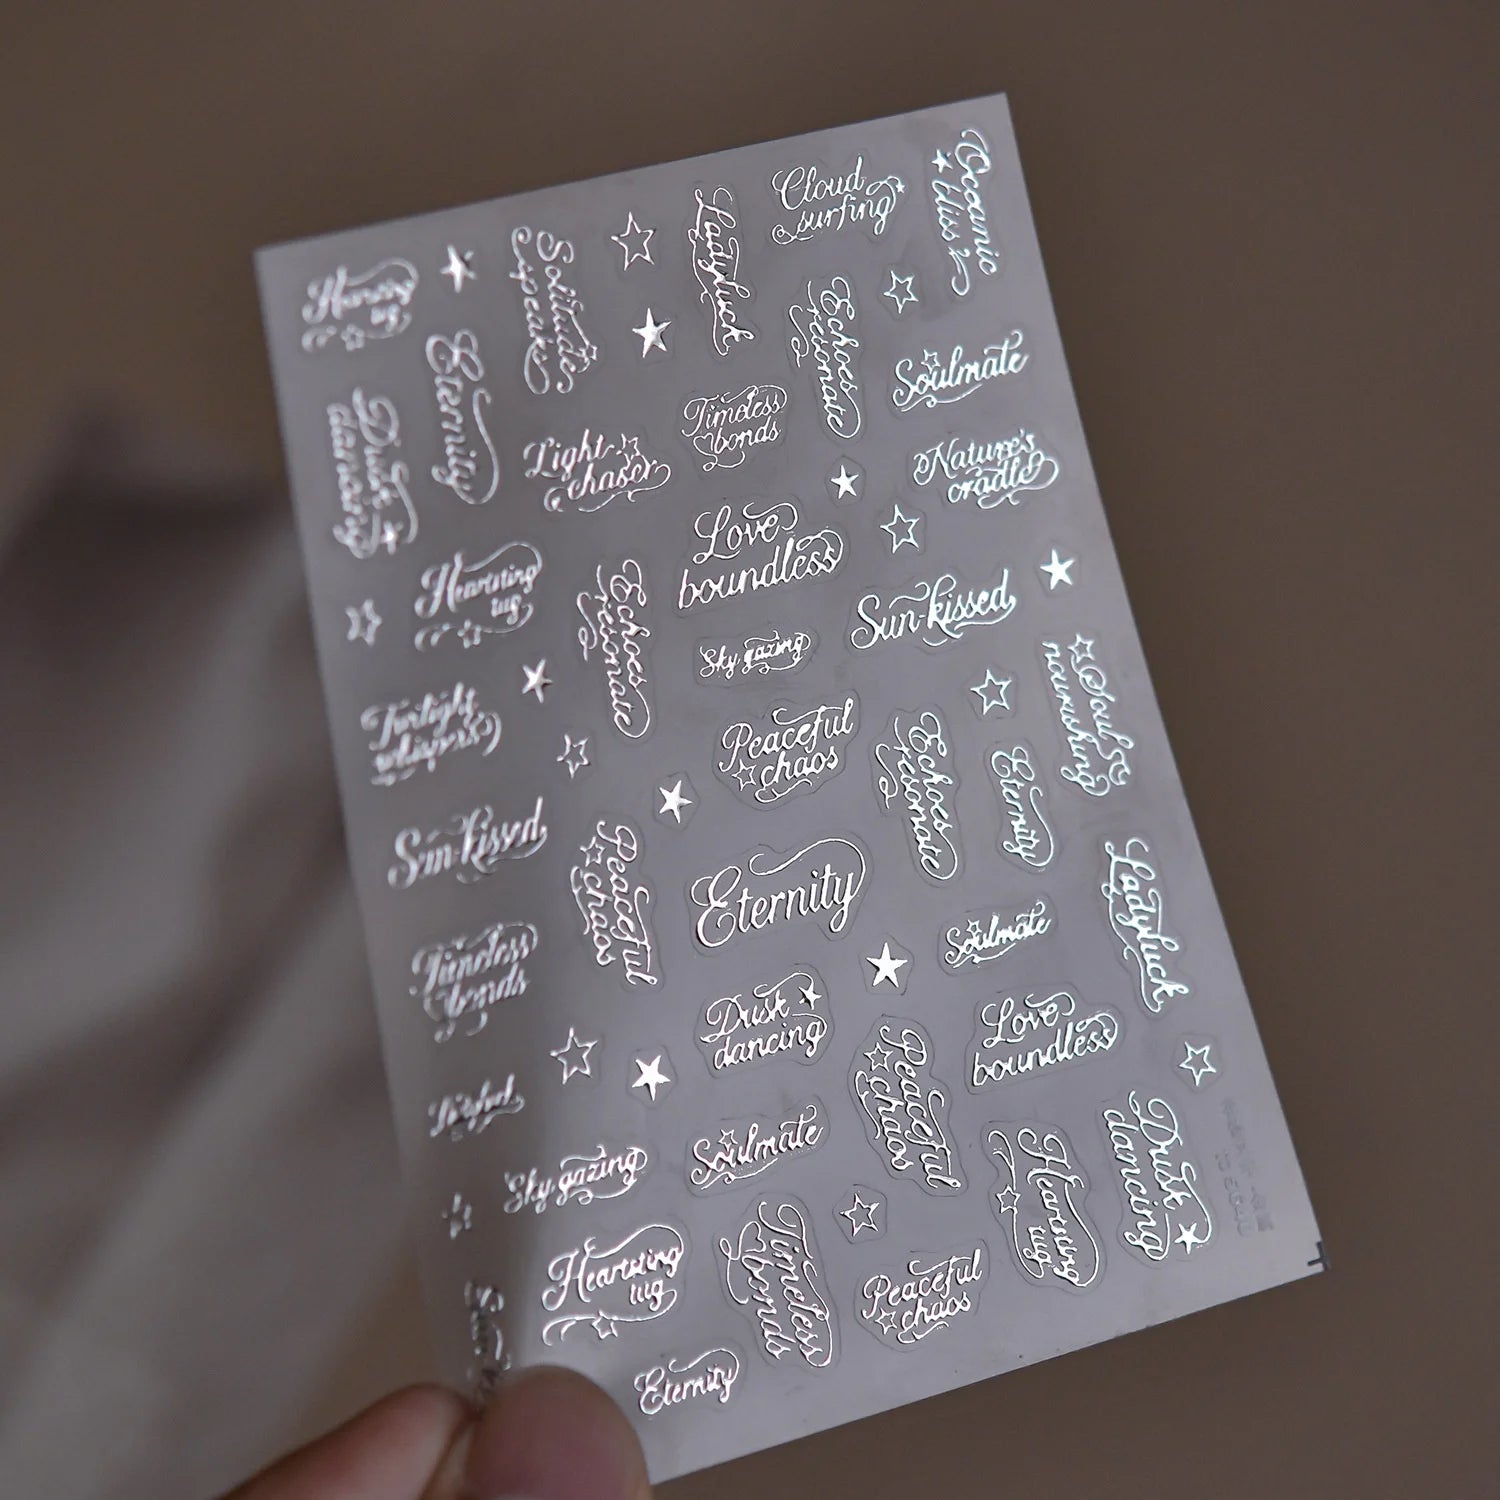 Oceanic
bliss
Cloud
surfing
Ladyluck
Solitude
speaks
Echoes
resonate
Soulmate
Eternity
Timeless
bonds
Dusk
dancing
Light
chaser
Nature's
cradle
Love
boundless
Heartstring
tug
Echoes
resonate
Sun-kissed
Sky gazing
Soul
nourishing
Twilight
whispers
Peaceful
chaos
Echoes
resonate
Eternity
Sun-kissed
Peaceful
chaos
Eternity
Ladyluck
Soulmate
Timeless
bonds
Dusk
dancing
Love
boundless
Peaceful
chaos
Soulmate
Sky gazing
Heartstring
tug
Dusk
dancing
Heartstring
tug
Timeless
bonds
Peaceful
chaos
Eternity